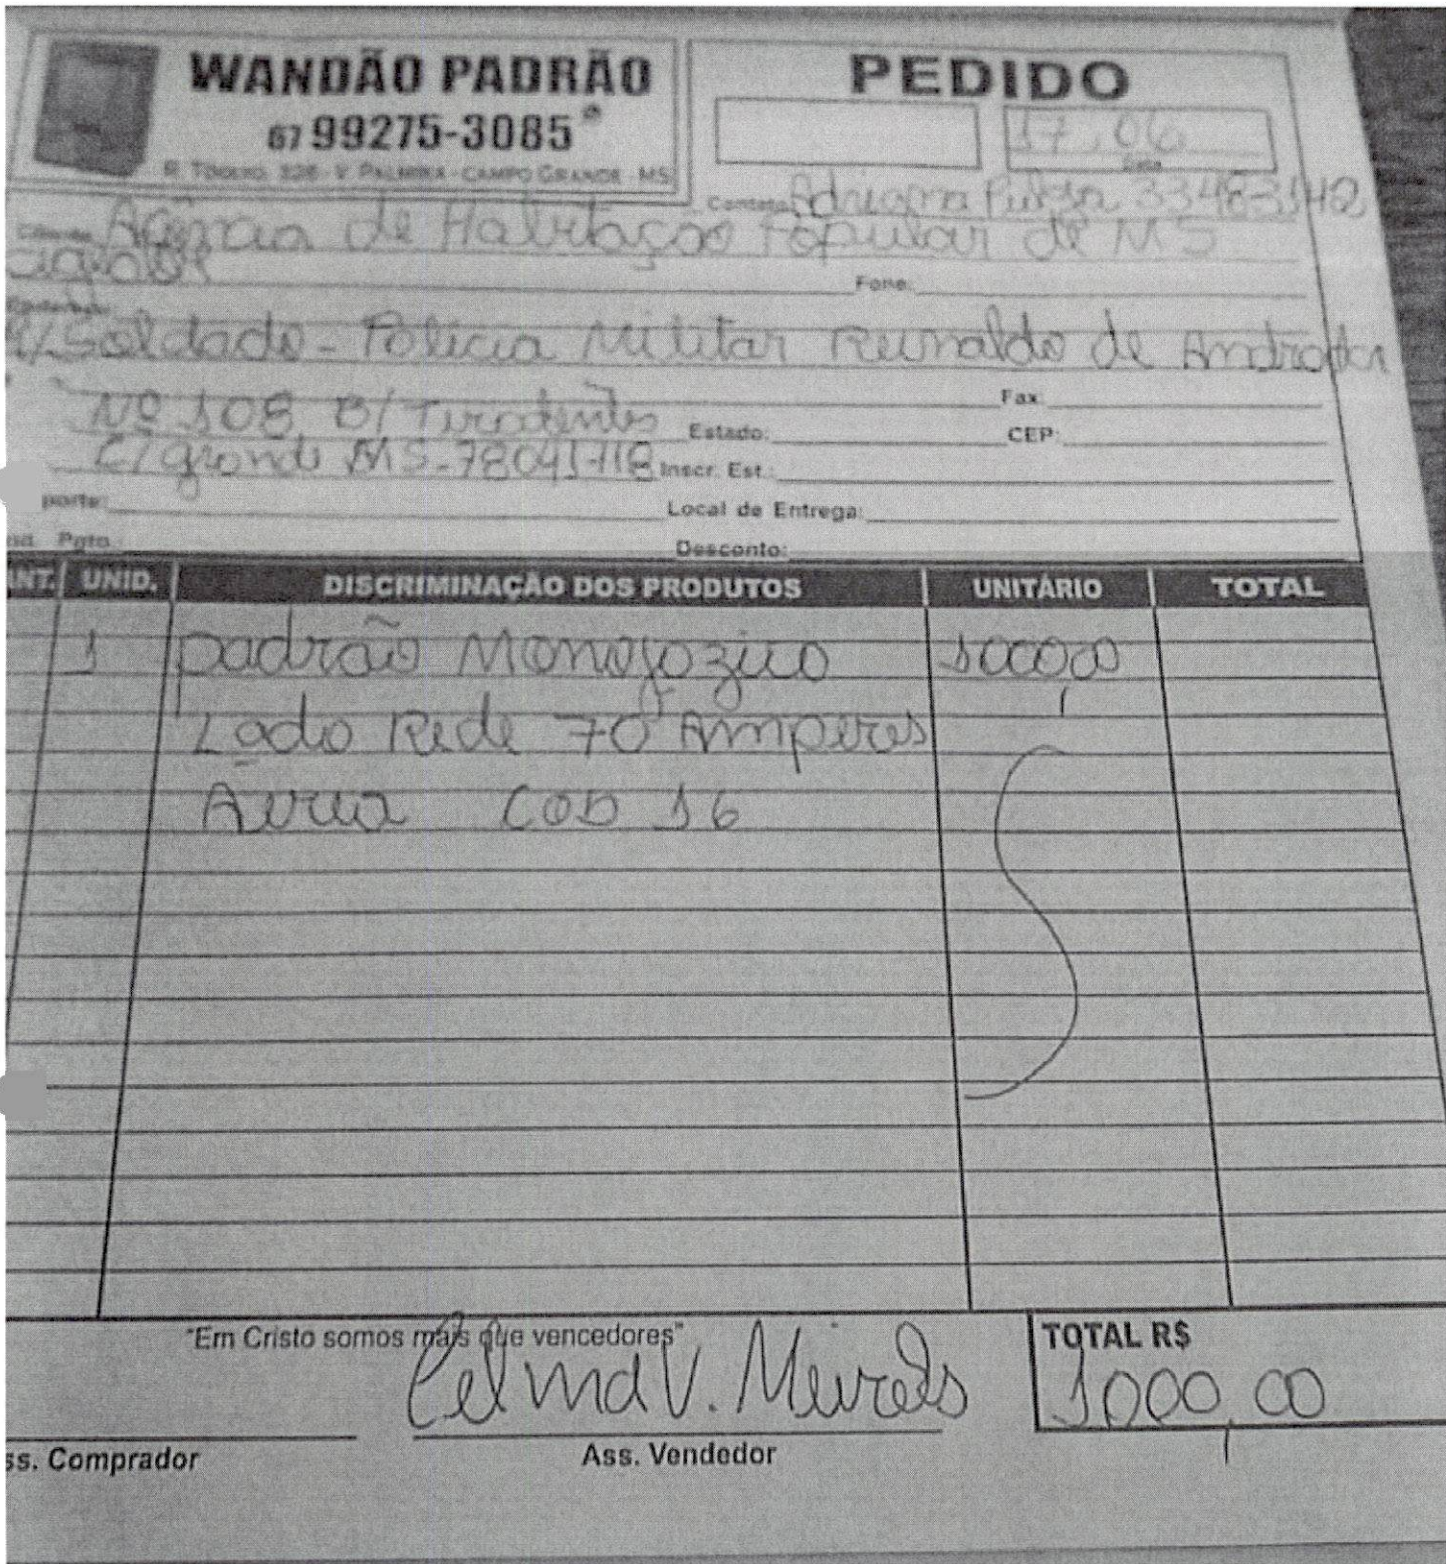 WANDÃO PADRÃO
67 99275-3085
CAMPO GRANDE - MS
PEDIDO
17.06
Data
Contato: Adriana 33483142
Agência de Habitação Popular de MS
Fone:
R/Soldado - Policia Militar Reinaldo de Andrade
Nº 108 B/ Tiradentes Fax:
Estado: CEP:
C/grande MS-79041118 Inscr. Est.:
porte: Local de Entrega:
Pgto.: Desconto:
ANT. UNID. DISCRIMINAÇÃO DOS PRODUTOS UNITÁRIO TOTAL
1 padrão Monofozico 1000,00
Lado Rede 70 Amperes
Aeria COD 16
"Em Cristo somos mais que vencedores"
TOTAL R$
Celma V. Meireles 1000,00
ss. Comprador Ass. Vendedor